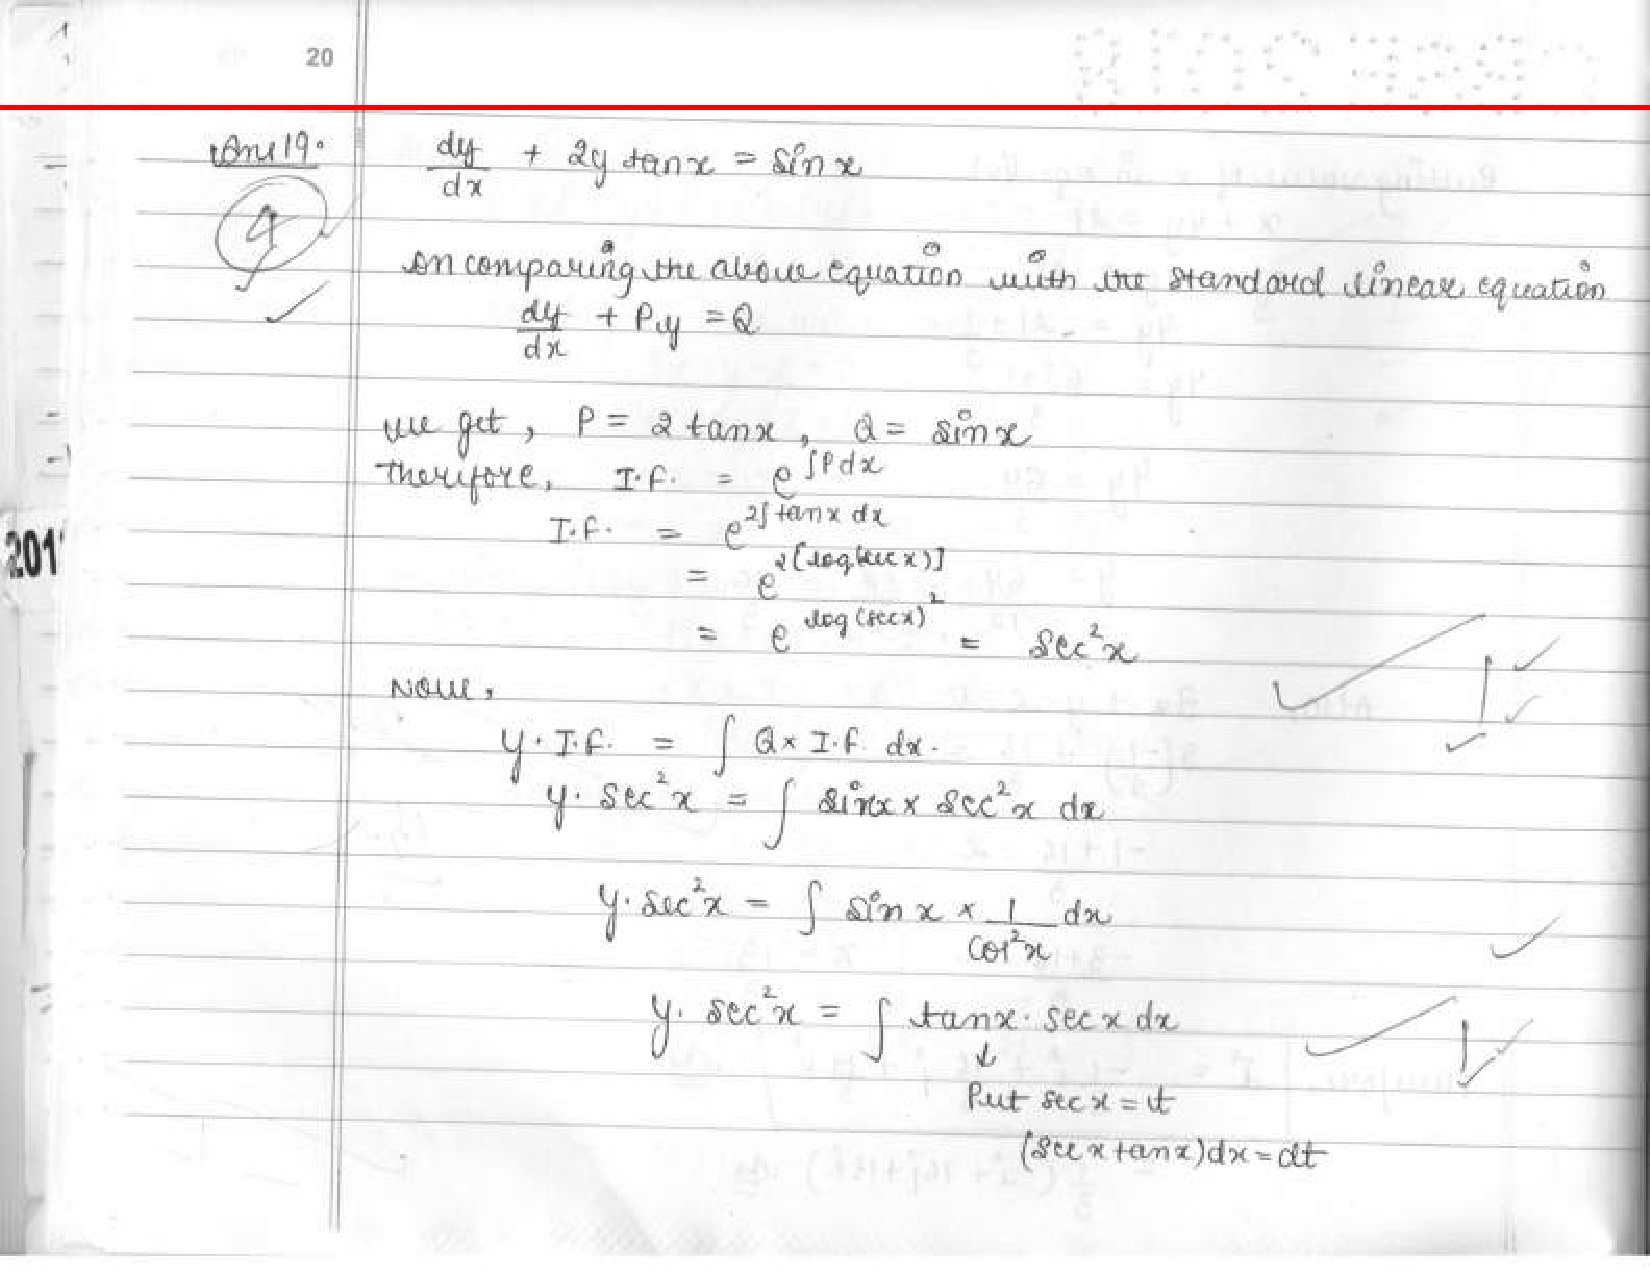 20
Ans 19.
dy/dx + 2y tanx = sinx
4
on comparing the above equation with the standard linear equation
dy/dx + P.y = Q
we get, P = 2 tanx, Q = sinx
Therefore, I.F. = e^∫Pdx
I.F. = e^2∫tanx dx
= e^2[log(sec x)]
= e^log(secx)² = sec²x
Now,
y. I.F. = ∫ Q× I.F. dx.
y. sec²x = ∫ sinx × sec²x dx
201
y. sec²x = ∫ sin x × 1/cos²x dx
y. sec²x = ∫ tanx. sec x dx
↓
Put sec x = t
(sec x tanx)dx = dt